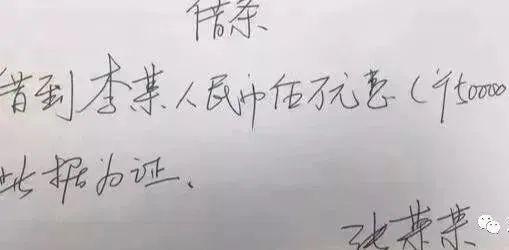 借条
借到李某人民币伍万元整（¥50000
此据为证、
张某某